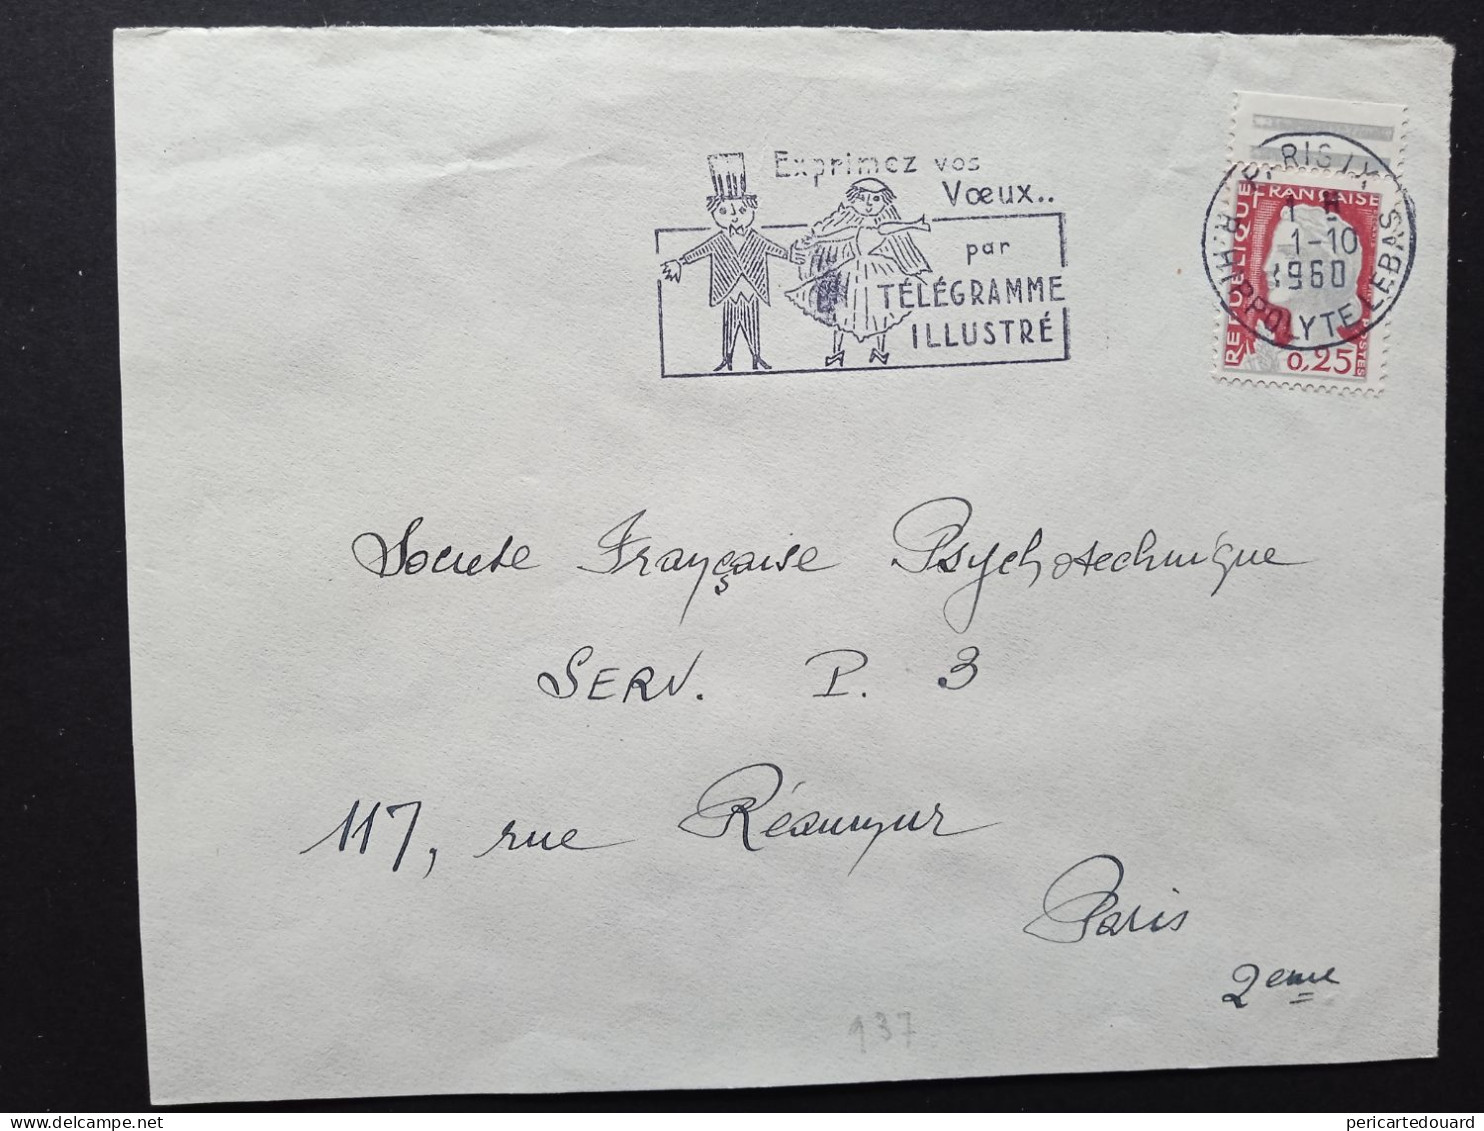 Exprimez vos
Vœux..
par
TÉLÉGRAMME
ILLUSTRÉ
PARIS IX
R. HIPPOLYTE LEBAS
1 H
1-10
1960
RÉPUBLIQUE FRANÇAISE
POSTES
0,25
Societe Française Psychotechnique
SERV. P. 3
117, rue Réaumur
Paris
2eme
937
pericartedouard